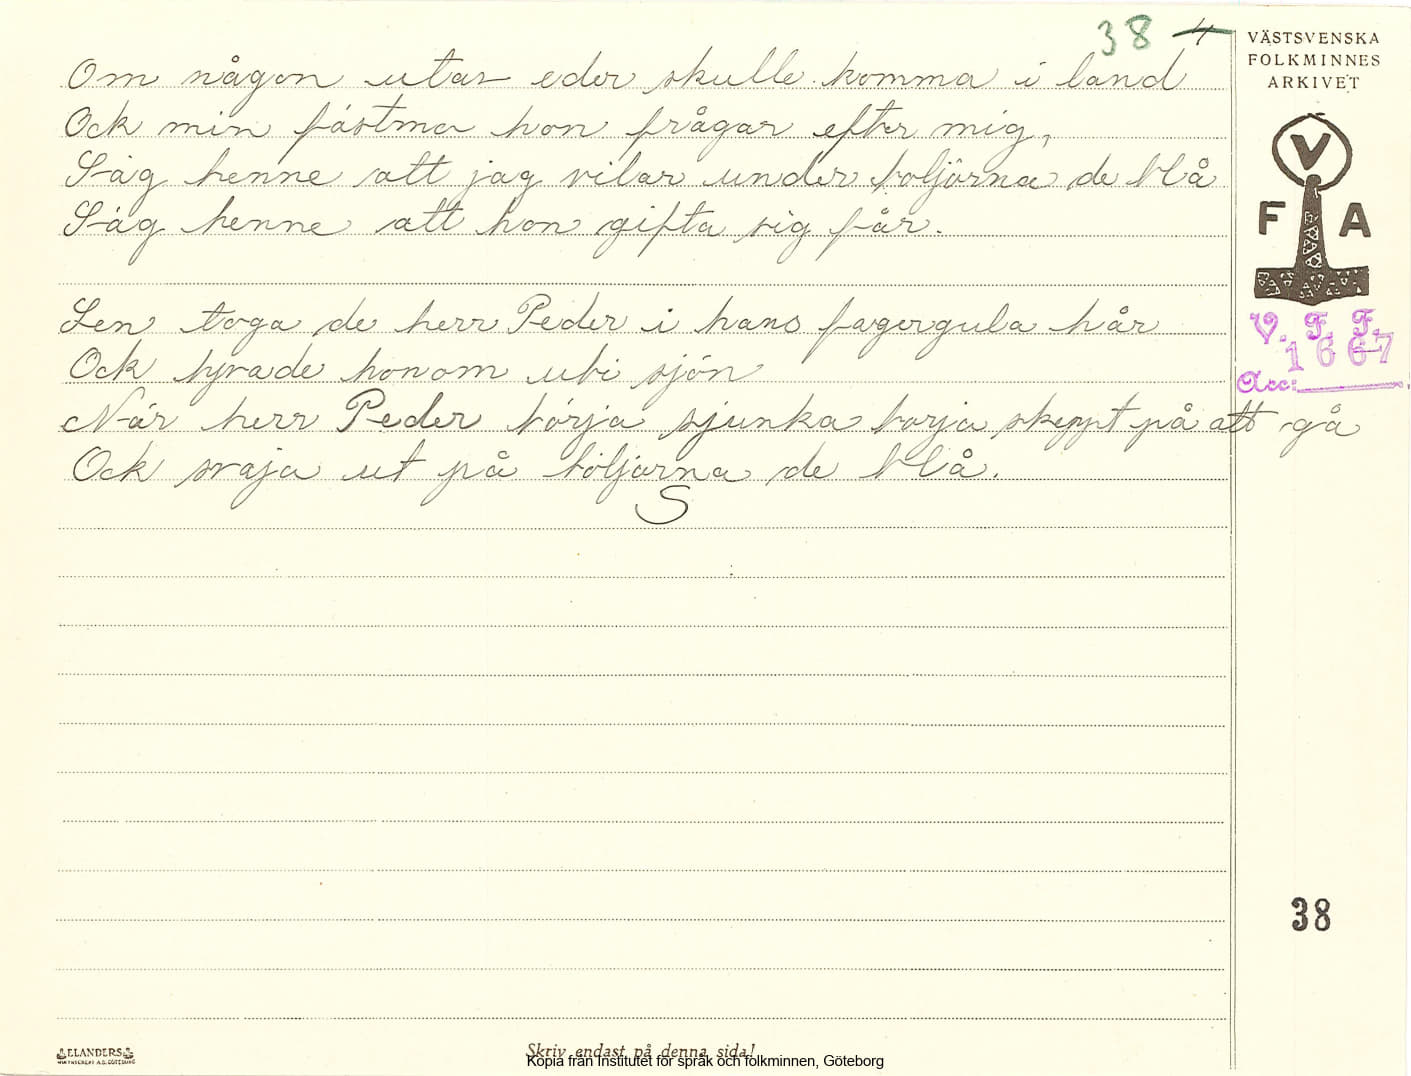 38 4
Om någon utav eder skulle komma i land
Ock min fästmö hon frågar efter mig,
Säg henne att jag vilar under böljorna de blå
Säg henne att hon gifta sig får.
Sen toga de herr Peder i hans fagergula hår
Ock hyvade honom ubi sjön
När herr Peder börja sjunka borja skeppt på att gå
Ock svaja ut på böljorna de blå.
S
VÄSTSVENSKA
FOLKMINNES
ARKIVET
V
F A
V. F. F.
1667
Acc:
38
ELANDERS
Skriv endast på denna sida!
Kopia från Institutet för språk och folkminnen, Göteborg